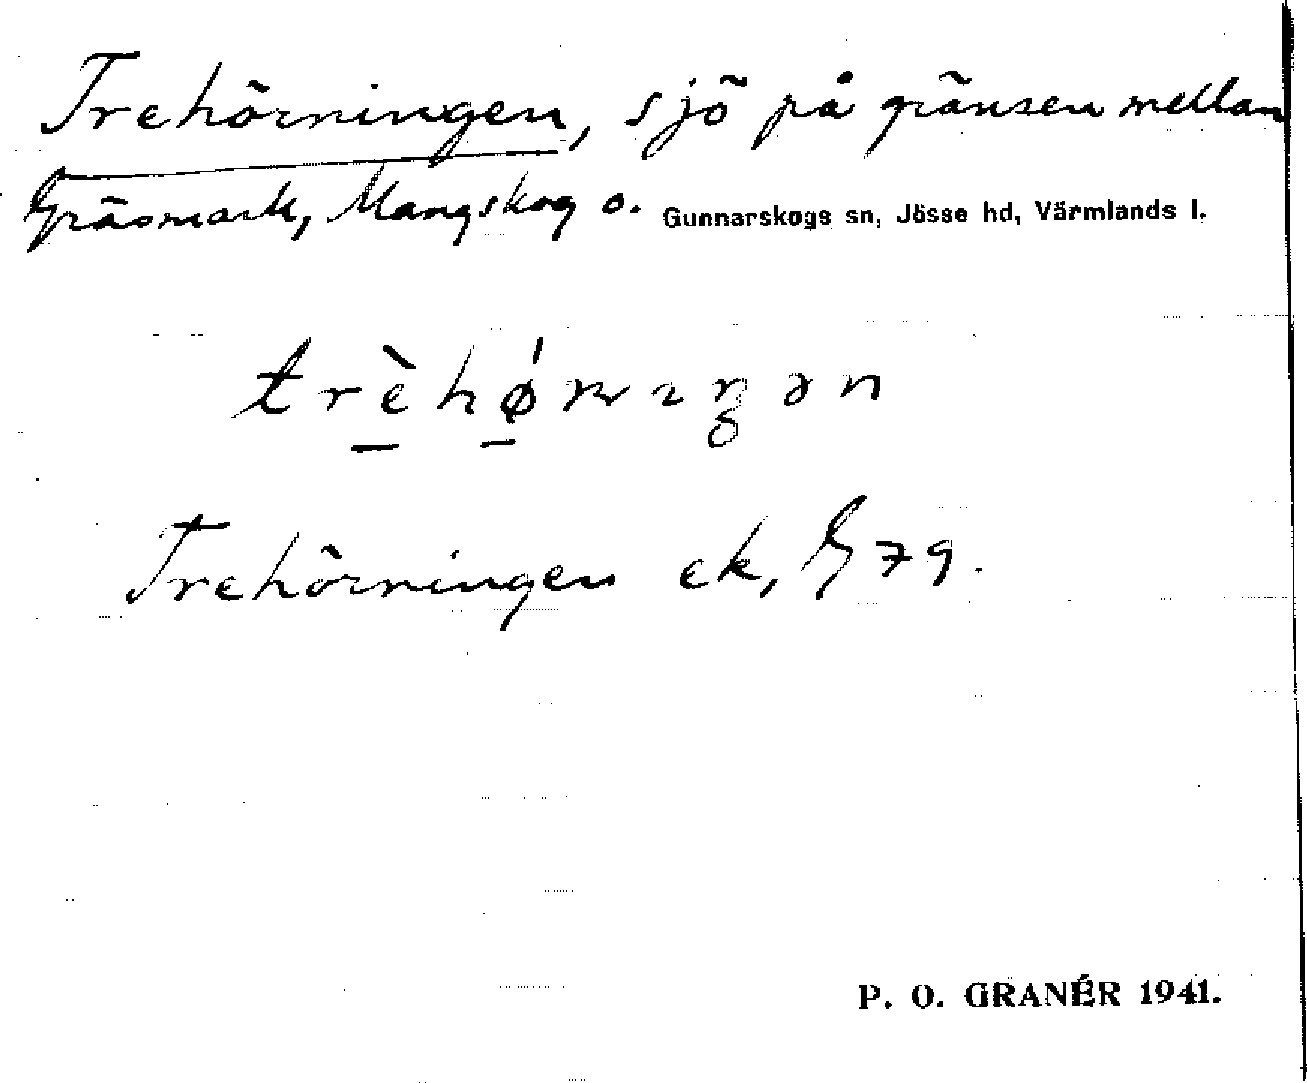 Trehörningen, sjö på gränsen mellan
Gräsmark, Mangskog o. Gunnarskogs sn, Jösse hd, Värmlands l.
Trehörningen ek, G 79.
P. O. GRANÉR 1941.